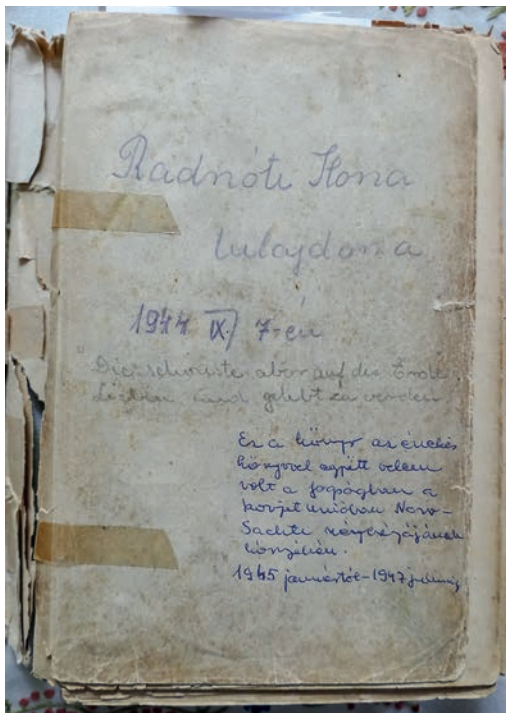 Radnóti Ilona
tulajdona
1944 IX/ 7-én
"Die schönste aber auf der Erde
Lieben und geliebt zu werden
Ez a könyv az énekes
könyvvel együtt velem
volt a fogságban a
Szovjetunióban Novo-
Sachti
1945 januártól-1947 júniusig